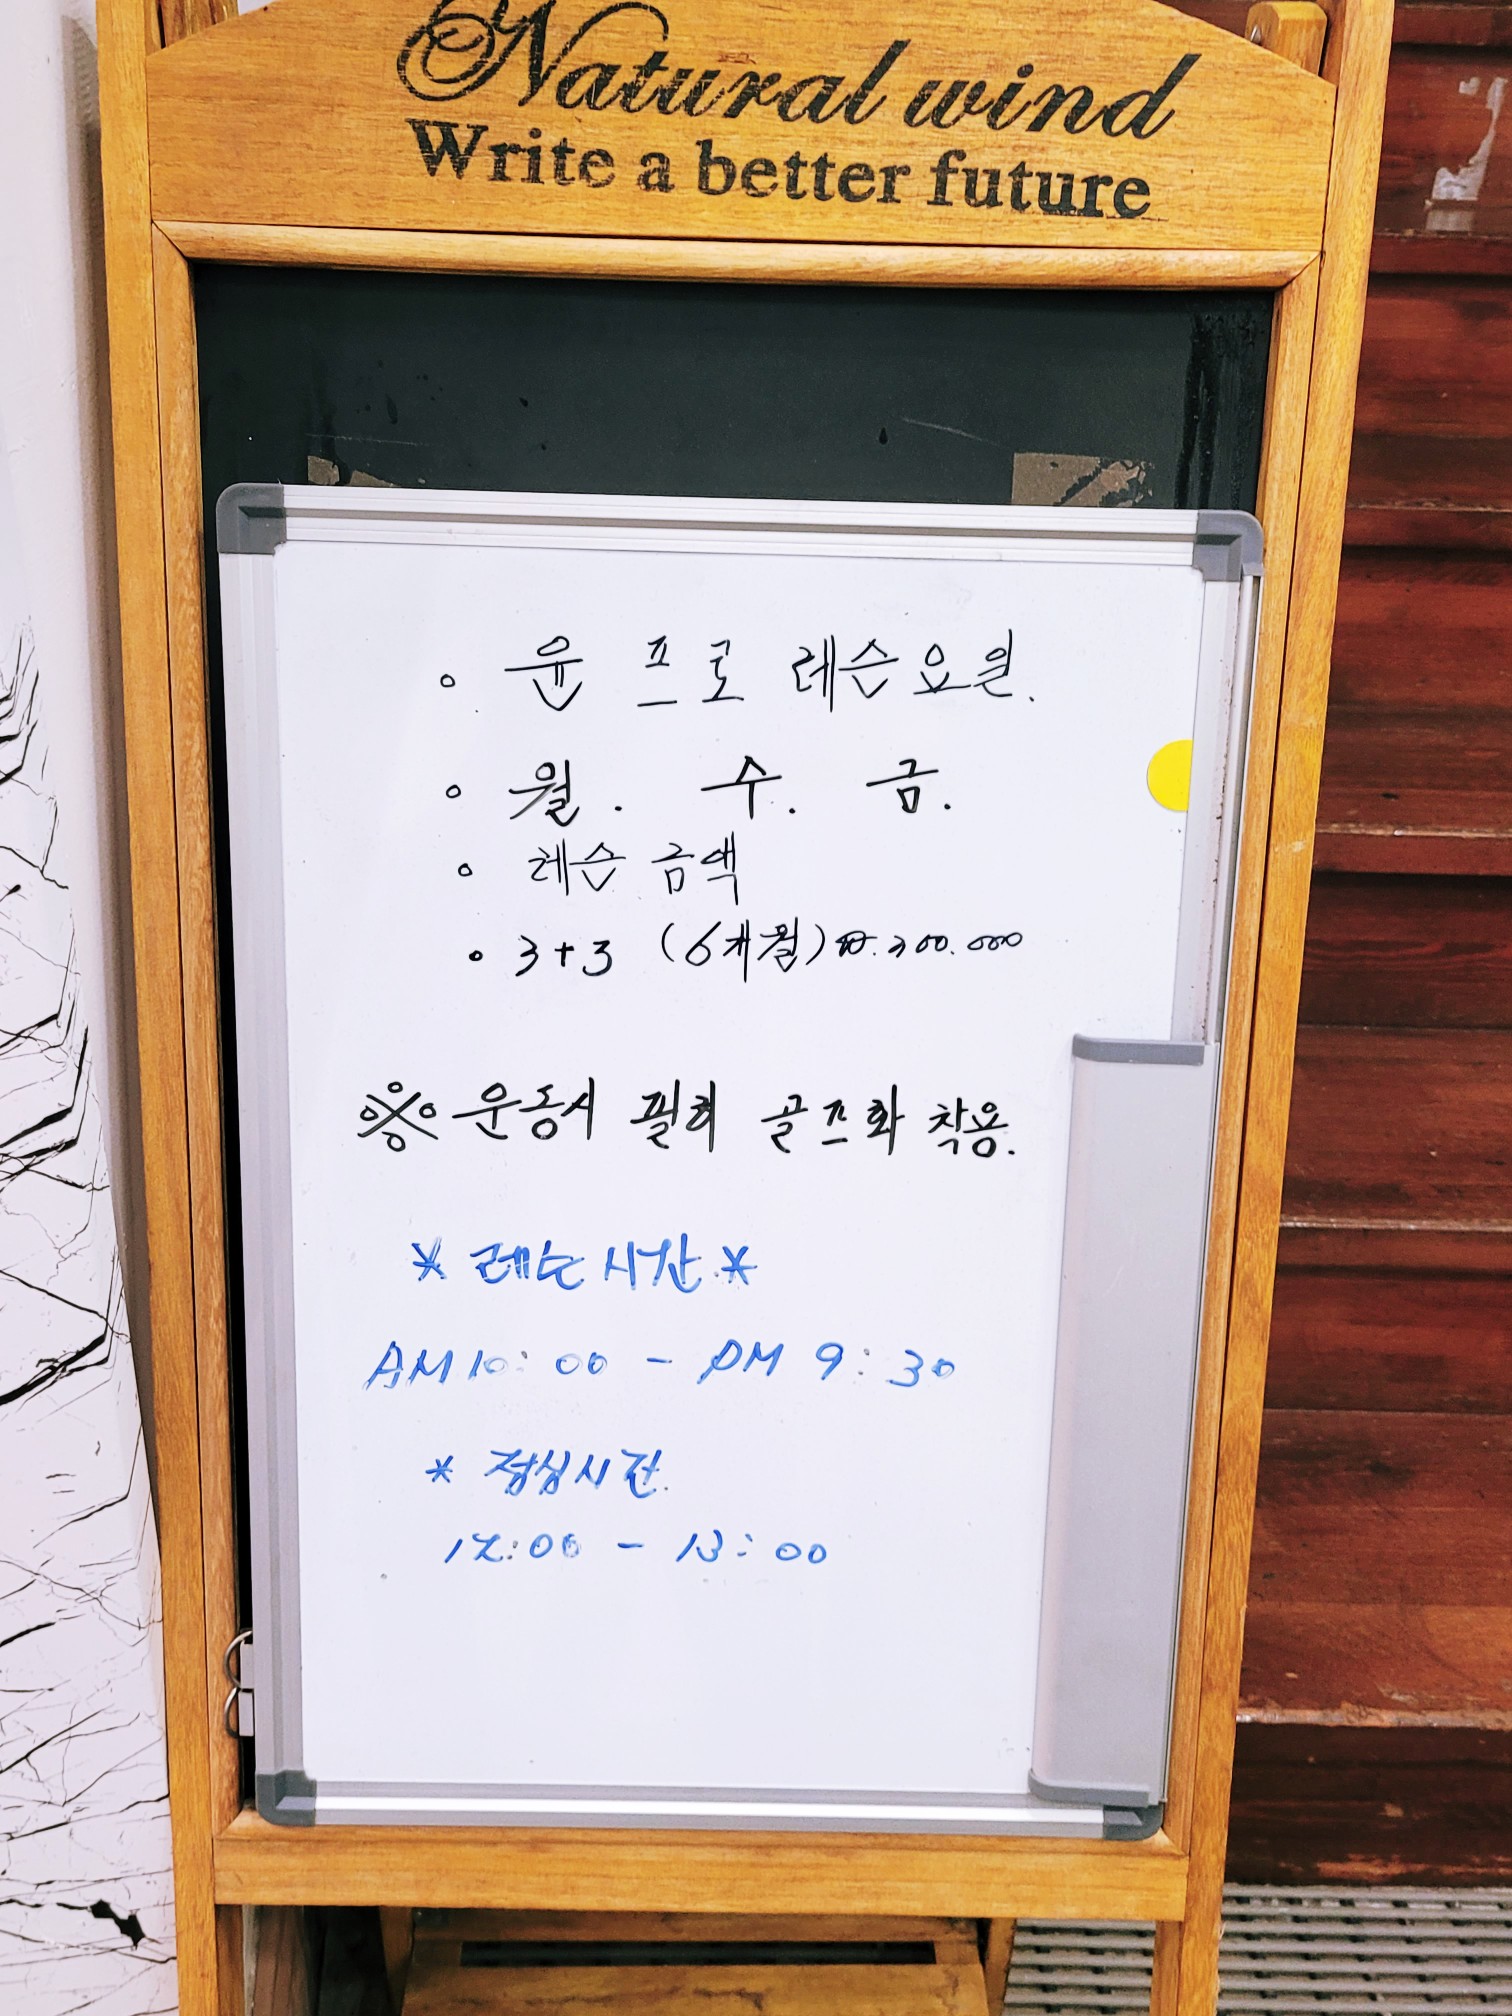 Natural wind
Write a better future
◦ 윤 프로 레슨요일.
◦ 월. 수. 금.
◦ 레슨 금액
• 3+3 (6개월)
※ 운동시 필히 골프화 착용.
* 레슨시간.*
AM 10:00 - PM 9:30
* 점심시간.
12:00 - 13:00